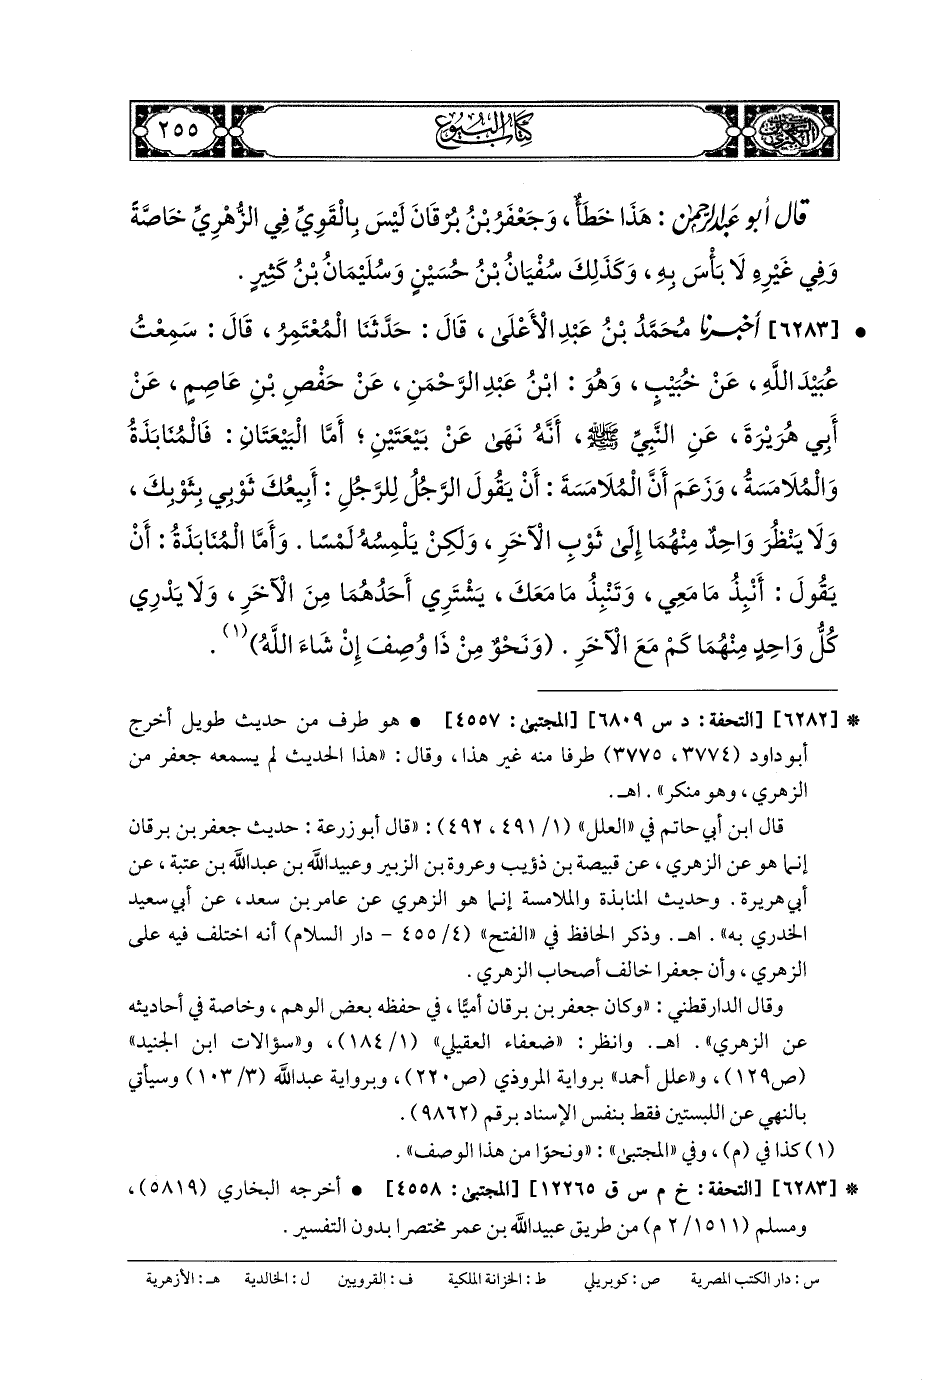 السنن الكبرى
كتاب البيوع
٢٥٥
قال أبو عبد الرحمن : هَذَا خَطَأٌ ، وَجَعْفَرُ بْنُ بُرْقَانَ لَيْسَ بِالْقَوِيِّ فِي الزُّهْرِيِّ خَاصَّةً
وَفِي غَيْرِهِ لَا بَأْسَ بِهِ ، وَكَذَلِكَ سُفْيَانُ بْنُ حُسَيْنٍ وَسُلَيْمَانُ بْنُ كَثِيرٍ .
• [٦٢٨٣] أخبرنا مُحَمَّدُ بْنُ عَبْدِ الْأَعْلَىٰ ، قَالَ : حَدَّثَنَا الْمُعْتَمِرُ ، قَالَ : سَمِعْتُ
عُبَيْدَ اللَّهِ ، عَنْ خُبَيْبٍ ، وَهُوَ : ابْنُ عَبْدِ الرَّحْمَنِ ، عَنْ حَفْصِ بْنِ عَاصِمٍ ، عَنْ
أَبِي هُرَيْرَةَ ، عَنِ النَّبِيِّ ﷺ ، أَنَّهُ نَهَىٰ عَنْ بَيْعَتَيْنِ ؛ أَمَّا الْبَيْعَتَانِ : فَالْمُنَابَذَةُ
وَالْمُلَامَسَةُ ، وَزَعَمَ أَنَّ الْمُلَامَسَةَ : أَنْ يَقُولَ الرَّجُلُ لِلرَّجُلِ : أَبِيعُكَ ثَوْبِي بِثَوْبِكَ ،
وَلَا يَنْظُرَ وَاحِدٌ مِنْهُمَا إِلَىٰ ثَوْبِ الْآخَرِ ، وَلَكِنْ يَلْمِسُهُ لَمْسًا . وَأَمَّا الْمُنَابَذَةُ : أَنْ
يَقُولَ : أَنْبِذُ مَا مَعِي ، وَتَنْبِذُ مَا مَعَكَ ، يَشْتَرِي أَحَدُهُمَا مِنَ الْآخَرِ ، وَلَا يَدْرِي
كُلُّ وَاحِدٍ مِنْهُمَا كَمْ مَعَ الْآخَرِ . (وَنَحْوٌ مِنْ ذَا وُصِفَ إِنْ شَاءَ اللَّهُ)(١) .
* [٦٢٨٢] [التحفة : د س ٦٨٠٩] [المجتبىٰ : ٤٥٥٧] • هو طرف من حديث طويل أخرج
أبو داود (٣٧٧٤ ، ٣٧٧٥) طرفا منه غير هذا ، وقال : «هذا الحديث لم يسمعه جعفر من
الزهري ، وهو منكر» . اهـ .
قال ابن أبي حاتم في «العلل» (١/ ٤٩١ ، ٤٩٢) : «قال أبو زرعة : حديث جعفر بن برقان
إنما هو عن الزهري ، عن قبيصة بن ذؤيب وعروة بن الزبير وعبيدالله بن عبدالله بن عتبة ، عن
أبي هريرة . وحديث المنابذة والملامسة إنما هو الزهري عن عامر بن سعد ، عن أبي سعيد
الخدري به» . اهـ . وذكر الحافظ في «الفتح» (٤/ ٤٥٥ - دار السلام) أنه اختلف فيه على
الزهري ، وأن جعفرا خالف أصحاب الزهري .
وقال الدارقطني : «وكان جعفر بن برقان أميًّا ، في حفظه بعض الوهم ، وخاصة في أحاديثه
عن الزهري» . اهـ . وانظر : «ضعفاء العقيلي» (١/ ١٨٤) ، و«سؤالات ابن الجنيد»
(ص١٢٩) ، و«علل أحمد» برواية المروذي (ص٢٢٠) ، وبرواية عبدالله (٣/ ١٠٣) وسيأتي
بالنهي عن اللبستين فقط بنفس الإسناد برقم (٩٨٦٢) .
(١) كذا في (م) ، وفي «المجتبىٰ» : «ونحوًا من هذا الوصف» .
* [٦٢٨٣] [التحفة : خ م س ق ١٢٢٦٥] [المجتبىٰ : ٤٥٥٨] • أخرجه البخاري (٥٨١٩) ،
ومسلم (١٥١١/ ٢ م) من طريق عبيدالله بن عمر مختصرا بدون التفسير .
س : دار الكتب المصرية ص : كوبريلي ط : الخزانة الملكية ف : القرويين ل : الخالدية هـ : الأزهرية